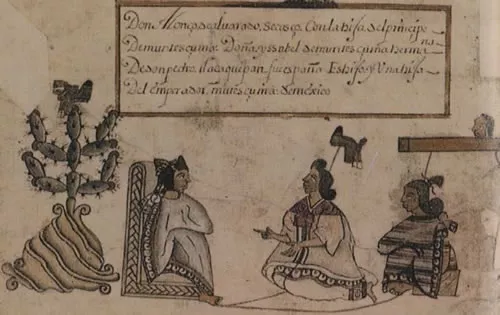 Don Alonço de aluarado, secasço. Con la hija del prinçipe
De mutesçuma. Doña, yssabel de mutesçuma herma na
De don pedro, tlacaquepan fue españa Es hijo y Una hija
Del emperador, mutesçuma de mexico